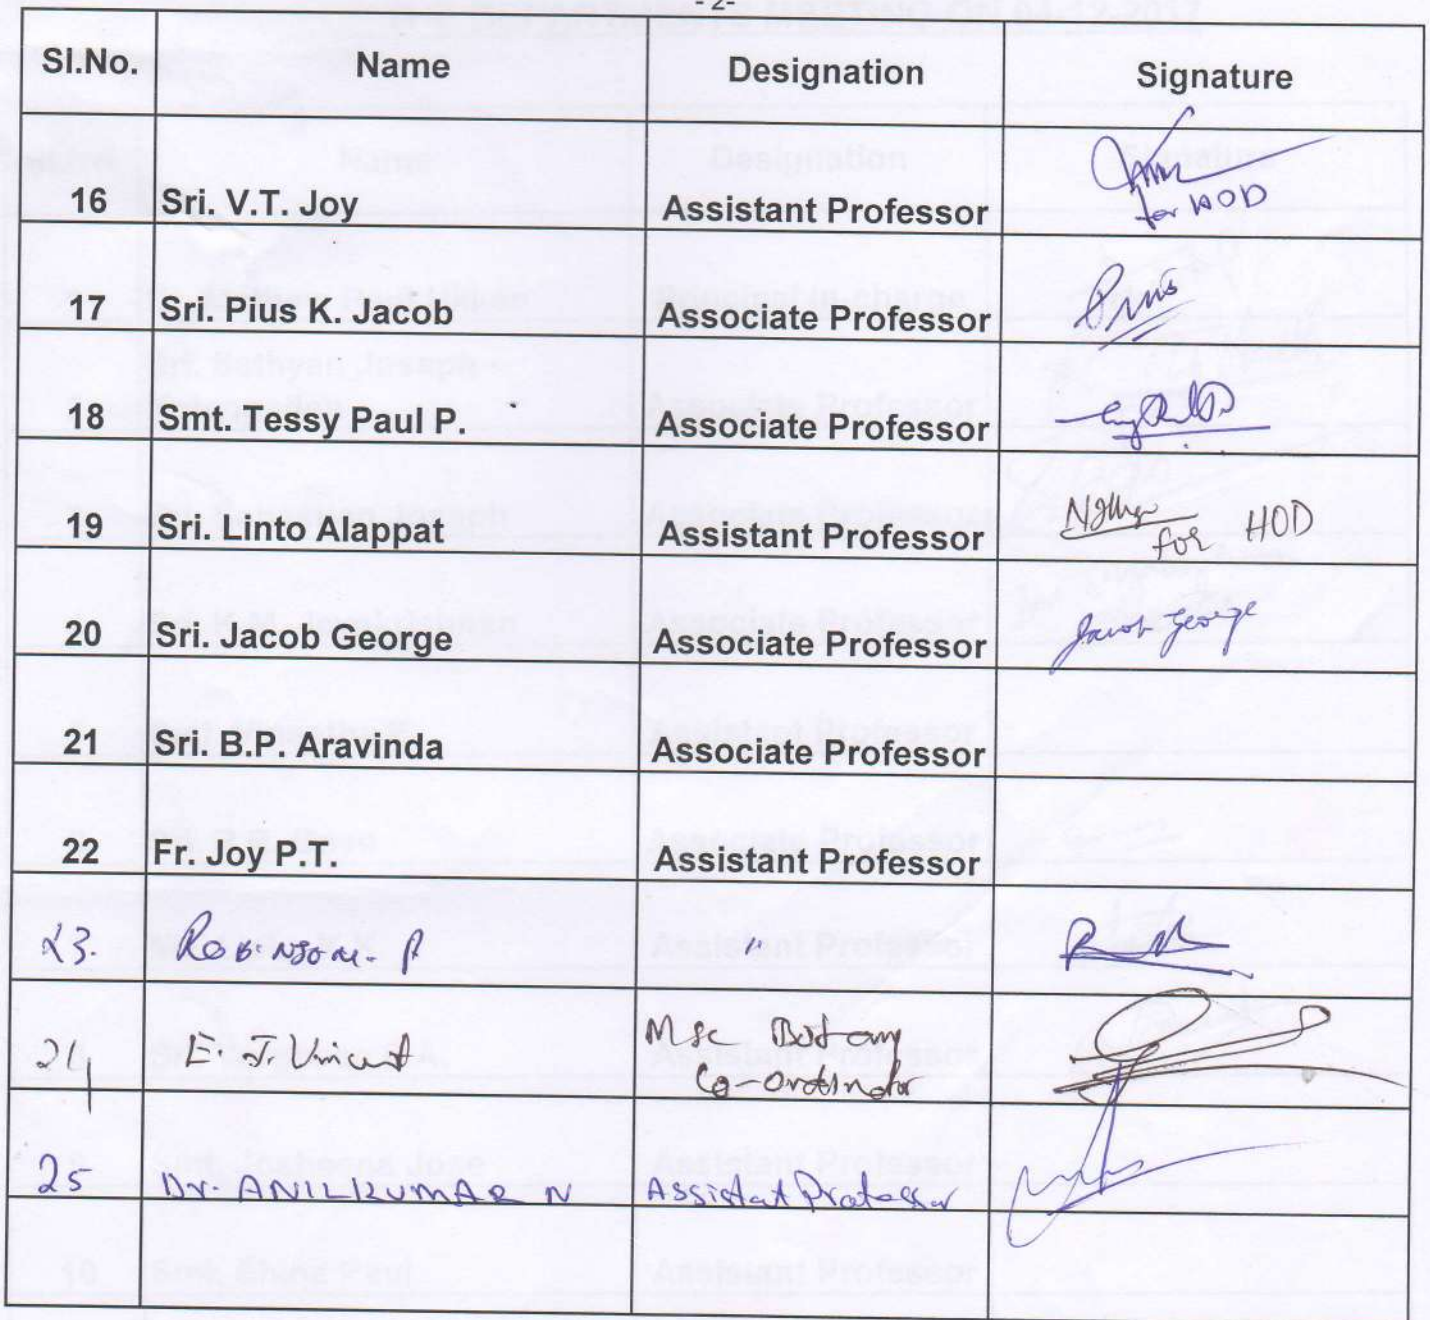 -2-
SI.No. Name Designation Signature
16 Sri. V.T. Joy Assistant Professor
for HOD
17 Sri. Pius K. Jacob Associate Professor Pius
18 Smt. Tessy Paul P. Associate Professor
19 Sri. Linto Alappat Assistant Professor
for HOD
20 Sri. Jacob George Associate Professor Jacob George
21 Sri. B.P. Aravinda Associate Professor
22 Fr. Joy P.T. Assistant Professor
23. Robinson. P "
24 E. J. Vincent Msc Botany
Co-ordinator
25 Dr. ANILKUMAR N Assistant Professor